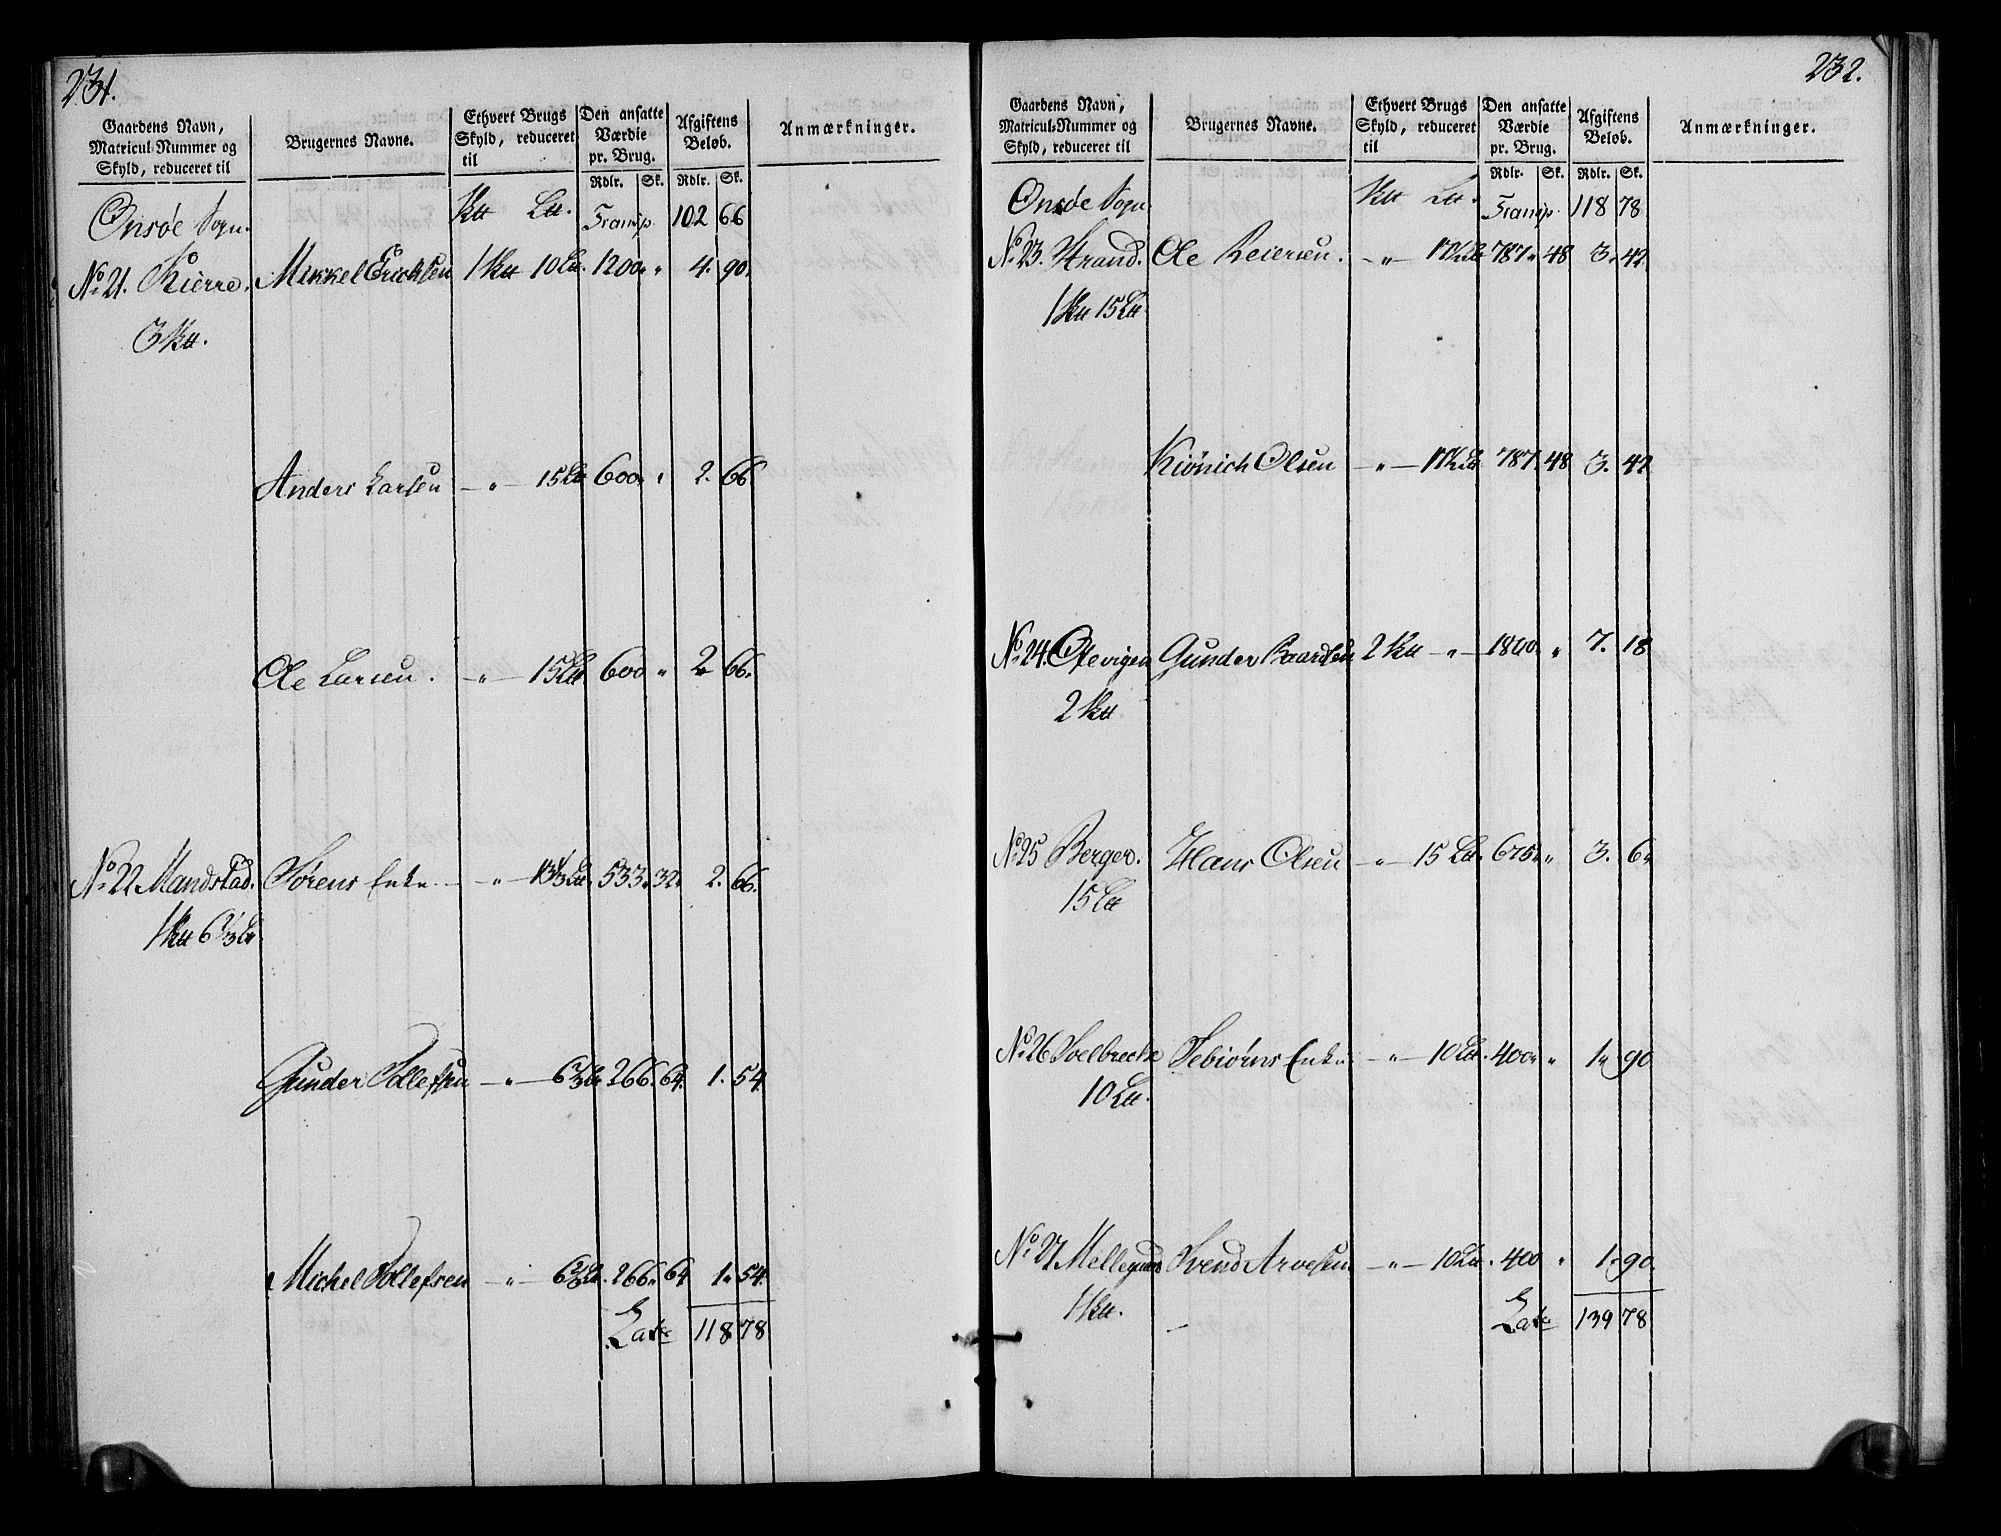 231.
Gaardens Navn, Matricul-Nummer og Skyld, reduceret til | Brugernes Navne. | Ethvert Brugs Skyld, reduceret til | Den ansatte Værdie pr. Brug. | Afgiftens Beløb. | Anmærkninger.
Rdlr. Sk. Rdlr. Sk.
Onsøe Sogn. K℔ L℔. Transp. 102 66
No. 21. Kierre. Mikkel Erichsen 1 K℔ 10 L℔. 1200 " 4. 90.
3 K℔.
Anders Larsen — " — 15 L℔ 600 " 2. 66.
Ole Larsen. — " — 15 L℔ 600 " 2 66.
No. 22 Mandstad. Sørens Enke — " — 13 1/3 L℔. 533. 32. 2. 66.
1 K℔ 6 2/3 L℔.
Gunder Tollefsen — " — 6 2/3 L℔. 266. 64. 1. 54.
Michel Tollefsen — " — 6 2/3 L℔. 266. 64 1. 54.
Late 118 78
232.
Gaardens Navn, Matricul-Nummer og Skyld, reduceret til | Brugernes Navne. | Ethvert Brugs Skyld, reduceret til | Den ansatte Værdie pr. Brug. | Afgiftens Beløb. | Anmærkninger.
Rdlr. Sk. Rdlr. Sk.
Onsøe Sogn. K℔ L℔. Transp. 118 78
No. 23. Strand. Ole Reiersen. — " — 17 1/2 L℔ 787. 48 3. 42.
1 K℔ 15 L℔.
Kiönich Olsen — " — 17 1/2 L℔ 787. 48 3. 42
No. 24. Elevigen Gunder Baardsen 2 K℔ — " — 1800. " 7. 18
2 K℔.
No. 25 Berger. Hans Olsen — " — 15 L℔. 675. " 3. 6.
15 L℔
No. 26 Soelbrecke Tebiørns Enke — " — 10 L℔. 400. " 1. 90
10 L℔.
No. 27 Svend Arvesen — " — 10 L℔. 400 " 1. 90.
1 K℔.
Late 139 78